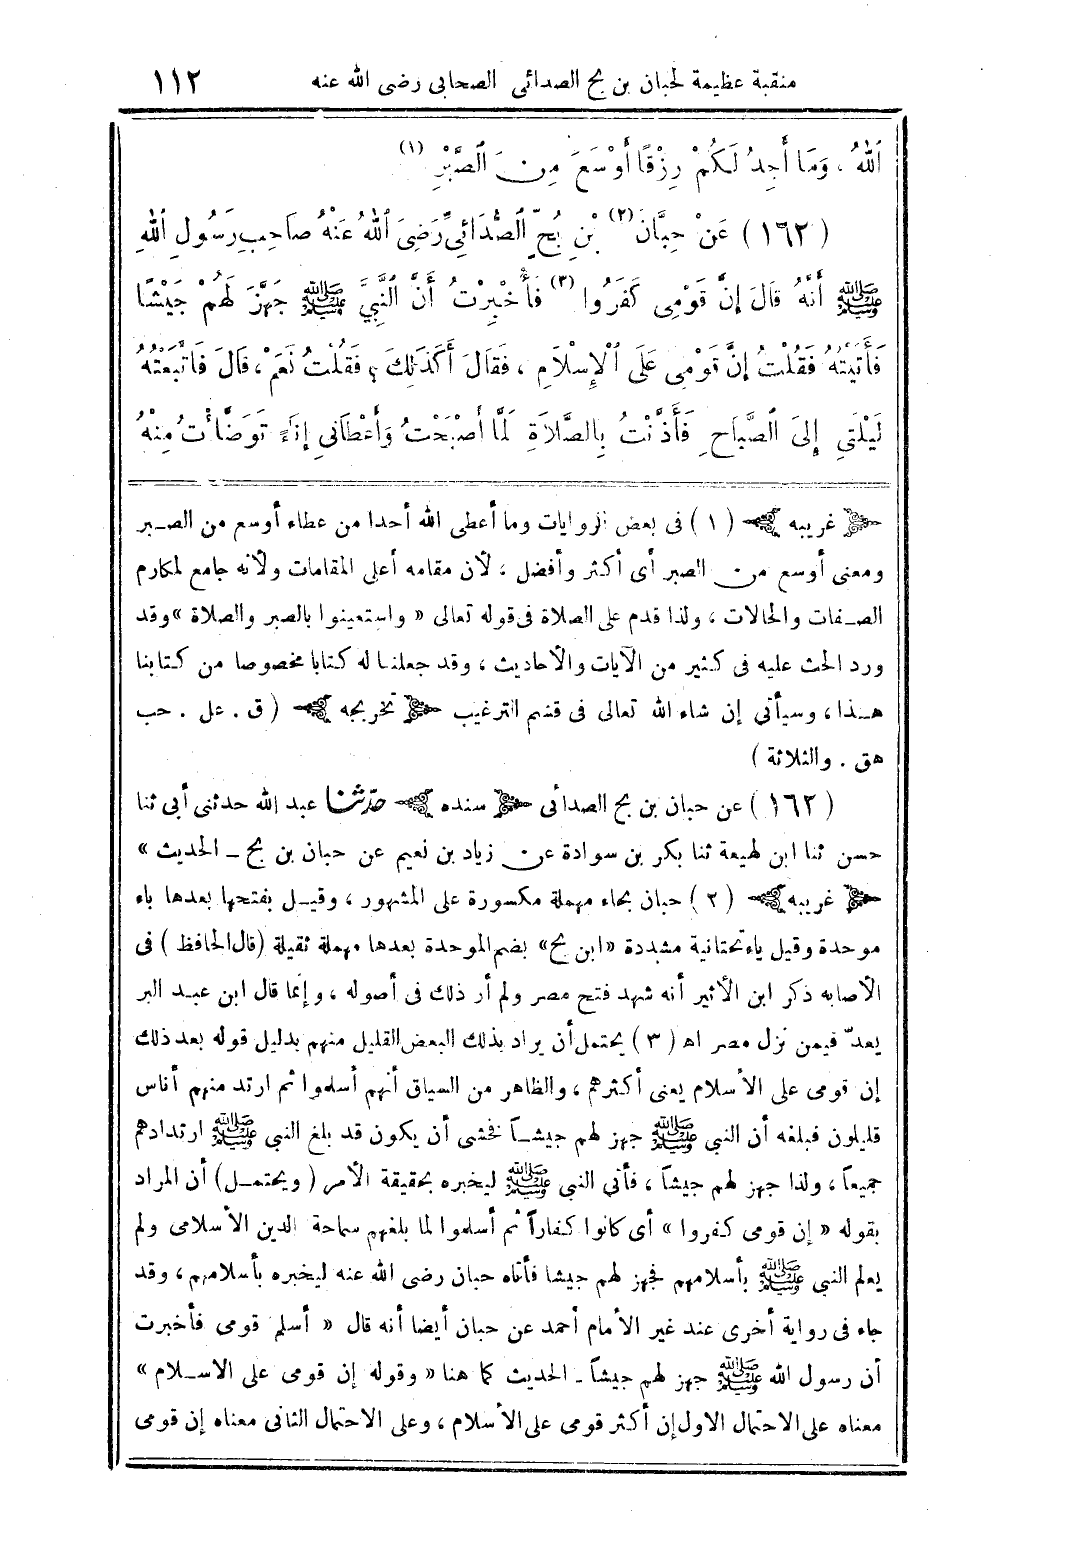 منقبة عظيمة لحبان بن بح الصدائى الصحابى رضى الله عنه ١١٢
اَللّٰهُ ، وَمَا أَجِدُ لَكُمْ رِزْقًا أَوْسَعَ مِنَ اَلصَّبْرِ (١)
( ١٦٢ ) عَنْ حِبَّانَ (٢) بْنِ بُحٍّ اَلصُّدَائِىِّ رَضِىَ اَللّٰهُ عَنْهُ صَاحِبِ رَسُولِ اَللّٰهِ
ﷺ أَنَّهُ قَالَ إِنَّ قَوْمِى كَفَرُوا (٣) فَأُخْبِرْتُ أَنَّ اَلنَّبِىَّ ﷺ جَهَّزَ لَهُمْ جَيْشًا
فَأَتَيْتُهُ فَقُلْتُ إِنَّ قَوْمِى عَلَى اَلْإِسْلَامِ ، فَقَالَ أَكَذٰلِكَ ؟ فَقُلْتُ نَعَمْ ، قَالَ فَاتَّبَعْتُهُ
لَيْلَتِى إِلَى اَلصَّبَاحِ فَأَذَّنْتُ بِالصَّلَاةِ لَمَّا أَصْبَحْتُ وَأَعْطَانِى إِنَاءً تَوَضَّأْتُ مِنْهُ
غريبه ( ١ ) فى بعض الروايات وما أعطى الله أحدا من عطاء أوسع من الصبر
ومعنى أوسع من الصبر أى أكثر وأفضل ، لأن مقامه أعلى المقامات ولأنه جامع لمكارم
الصفات والحالات ، ولذا قدم على الصلاة فى قوله تعالى « واستعينوا بالصبر والصلاة » وقد
ورد الحث عليه فى كثير من الآيات والأحاديث ، وقد جعلنا له كتابا مخصوصا من كتابنا
هذا ، وسيأتى إن شاء الله تعالى فى قسم الترغيب تخريجه ( ق . عل . حب
هق . والثلاثة )
( ١٦٢ ) عن حبان بن بح الصدائى سنده حدثنا عبد الله حدثنى أبى ثنا
حسن ثنا ابن لهيعة ثنا بكر بن سوادة عن زياد بن نعيم عن حبان بن بح ــ الحديث »
غريبه ( ٢ ) حبان بحاء مهملة مكسورة على المشهور ، وقيل بفتحها بعدها باء
موحدة وقيل ياء تحتانية مشددة « ابن بح » بضم الموحدة بعدها مهملة ثقيلة ( قال الحافظ ) فى
الأصابه ذكر ابن الأثير أنه شهد فتح مصر ولم أر ذلك فى أصوله ، وإنما قال ابن عبد البر
يعدّ فيمن نزل مصر اه ( ٣ ) يحتمل أن يراد بذلك البعض القليل منهم بدليل قوله بعد ذلك
إن قومى على الأسلام يعنى أكثرهم ، والظاهر من السياق أنهم أسلموا ثم ارتد منهم أناس
قليلون فبلغه أن النبى ﷺ جهز لهم جيشاً فخشى أن يكون قد بلغ النبى ﷺ ارتدادهم
جميعاً ، ولذا جهز لهم جيشاً ، فأتى النبى ﷺ ليخبره بحقيقة الأمر ( ويحتمل ) أن المراد
بقوله « إن قومى كفروا » أى كانوا كفاراً ثم أسلموا لما بلغهم سماحة الدين الأسلامى ولم
يعلم النبى ﷺ بأسلامهم فجهز لهم جيشا فأتاه حبان رضى الله عنه ليخبره بأسلامهم ، وقد
جاء فى رواية أخرى عند غير الأمام أحمد عن حبان أيضا أنه قال « أسلم قومى فأخبرت
أن رسول الله ﷺ جهز لهم جيشاً ــ الحديث كما هنا « وقوله إن قومى على الاسلام »
معناه على الاحتمال الاول إن أكثر قومى على الأسلام ، وعلى الاحتمال الثانى معناه إن قومى